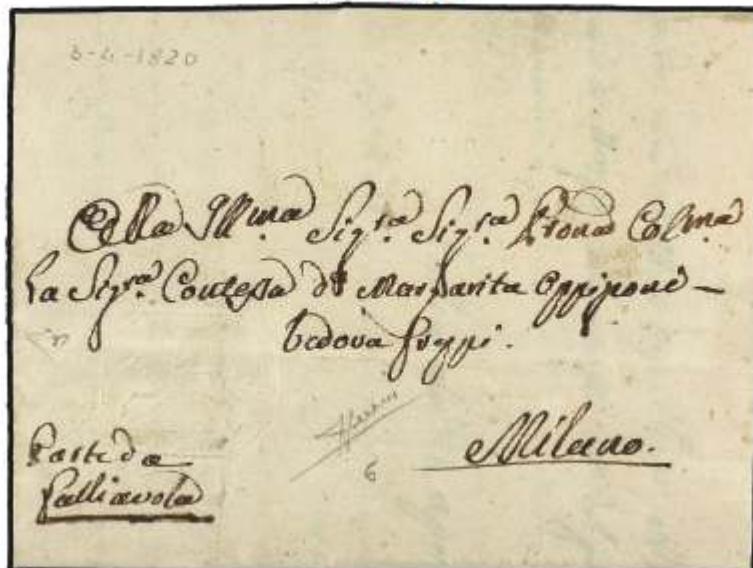 3-4-1820
Alla Illma. Sigra. Sigra. Prona Colma.
La Sigra. Contessa Da. Margarita Oppizoni –
vedova Greppi.
Milano.
6
Parte da
Galliavola